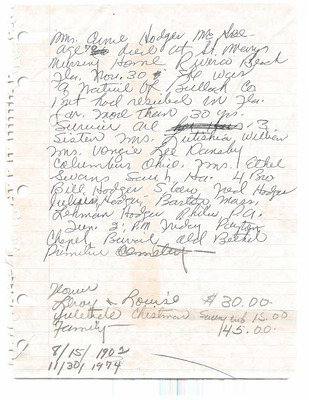 Mrs. Annie Hodges Mc Gee
Age 78 died at St. Marys
Nursing Home Riviera Beach
Fla. Nov. 30 She was
A Native of Bulloch Co
but had resided in Fla.
far more than 30 yrs.
Survivor are 3
Sister Mrs. Wilson
Mrs. Lee Dansby
Columbus Ohio. Mrs. Ethel
Evans Sav'h, Ga. 4 Bro
Bill Hodges S'boro, Hodges
Julius Hodges, Boston Mass.
Lehman Hodges Phila P.A.
3: P.M. Friday Payton
Chapel Burial, old Bethel
Primitive Cemetery
Flower
Leroy & Louise $30.00
Yuletide Christmas Saving club 15.00
Family 145.00
8/15/1902
11/30/1974